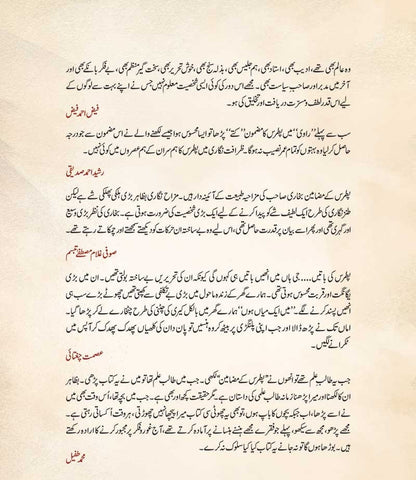 وہ عالم بھی تھے، ادیب بھی، استاد بھی، ہم جلیس بھی، بذلہ سنج بھی، خوش تحریر بھی، سخت گیر منتظم بھی، بے فکر بانکے بھی اور
آخر میں مدبر اور صاحب سیاست بھی۔ مجھے اس دور کی کوئی ایسی شخصیت معلوم نہیں جس نے اپنے بہت سے لوگوں کے
لیے اس قدر لطف و مسرت دریافت اور تخلیق کی ہو۔
فیض احمد فیض
سب سے پہلے ”راوی“ میں پطرس کا مضمون ”کتے“ پڑھا تو ایسا محسوس ہوا جیسے لکھنے والے نے اس مضمون سے جو درجہ
حاصل کر لیا وہ بہتوں کو تمام عمر نصیب نہ ہوگا۔ ظرافت نگاری میں پطرس کا ہم سر ان کے ہم عصروں میں کوئی نہیں۔
رشید احمد صدیقی
پطرس کے مضامین بخاری صاحب کی مزاحیہ طبیعت کے آئینہ دار ہیں۔ مزاح نگاری بظاہر بڑی ہلکی پھلکی شے ہے لیکن
طنز نگاری کی طرح ایک لطیف شے کو پیدا کرنے کے لیے ایک بڑی شخصیت کی ضرورت ہوتی ہے۔ بخاری کی نظر بڑی وسیع
اور گہری تھی اور پھر اسے بیان پر قدرت حاصل تھی، اس لیے وہ بے ساختہ ان حرکات کو دیکھتے سمجھتے اور چکاتے رہتے تھے۔
صوفی غلام مصطفےٰ تبسم
پطرس کی باتیں.... جی ہاں میں انھیں باتیں ہی کہوں گی کیونکہ ان کی تحریریں بے ساختہ بولتی تھیں۔ ان میں بڑی
یگانگت اور قربت محسوس ہوتی تھی۔ ہمارے گھر کے زندہ ماحول میں بڑی بے تکلفی سے کھپتی تھیں چھوٹے بڑے سب ہی
انھیں پسند کرنے لگے۔ ”میں ایک میاں ہوں“ ہمارے گھر میں بالکل کیری کی چٹنی کی طرح چٹخارے لے کر پڑھا گیا۔
اماں تک نے پڑھ ڈالا اور جب اپنی پلنگڑی پر بیٹھ کر وہ ہنسیں تو پان دان کی کلھیاں پھدک پھدک کر آپس میں
ٹکرانے لگیں۔
عصمت چغتائی
جب یہ طالب علم تھے تو انھوں نے ”پطرس کے مضامین“ لکھی۔ جب میں طالب علم تھا تو میں نے یہ کتاب پڑھی۔ بظاہر
ان کا لکھنا اور میرا پڑھنا زمانہ طالب علمی کی داستان ہے۔ مگر حقیقت کچھ اور بھی ہے۔ جب میں بچہ تھا، اُس وقت بھی میں
نے اسے پڑھا، اب جبکہ بچوں کا باپ ہوں تو بھی یہ چھوٹی سی کتاب میرا پیچھا نہیں چھوڑتی، ہر وقت اکساتی رہتی ہے۔
مجھے پڑھو، مجھ سے سیکھو، پہلے جو فقرے مجھے ہنسنے ہنسانے پر آمادہ کرتے تھے، آج غور و فکر پر مجبور کرنے کا ارادہ رکھتے
ہیں۔ بوڑھا ہوں گا تو نہ جانے یہ کتاب کیا کیا سلوک نہ کرے۔
محمد طفیل